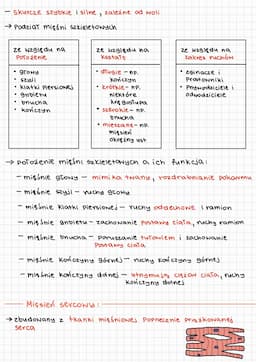 - skurcze szybkie i silne, zależne od woli
→ Podział mięśni szkieletowych
ze względu na
Położenie
• głowy
• szyi
• klatki piersiowej
• grzbietu
• brzucha
• kończyn
ze względu na
kształt
• długie - np.
kończyn
• krótkie - np.
niektóre
kręgosłupa
• szerokie - np.
brzucha
• mieszane - np.
mięsień
okrężny ust
ze względu na
zakres ruchów
• zginacze i
Prostowniki
• Przywodziciele i
odwodziciele
→ Położenie mięśni szkieletowych a ich funkcja:
- mięśnie głowy - mimika twarzy, rozdrabnianie pokarmu
- mięśnie szyi - ruchy głowy
- mięśnie klatki piersiowej - ruchy oddechowe i ramion
- mięśnie grzbietu - zachowanie postawy ciała, ruchy ramion
- mięśnie brzucha - poruszanie tułowiem i zachowanie
Postawy ciała
- mięśnie kończyny górnej - ruchy kończyny górnej
- mięśnie kończyny dolnej - utrzymują ciężar ciała, ruchy
kończyny dolnej
Mięsień sercowy:
→ zbudowany z tkanki mięśniowej poprzecznie prążkowanej
serca